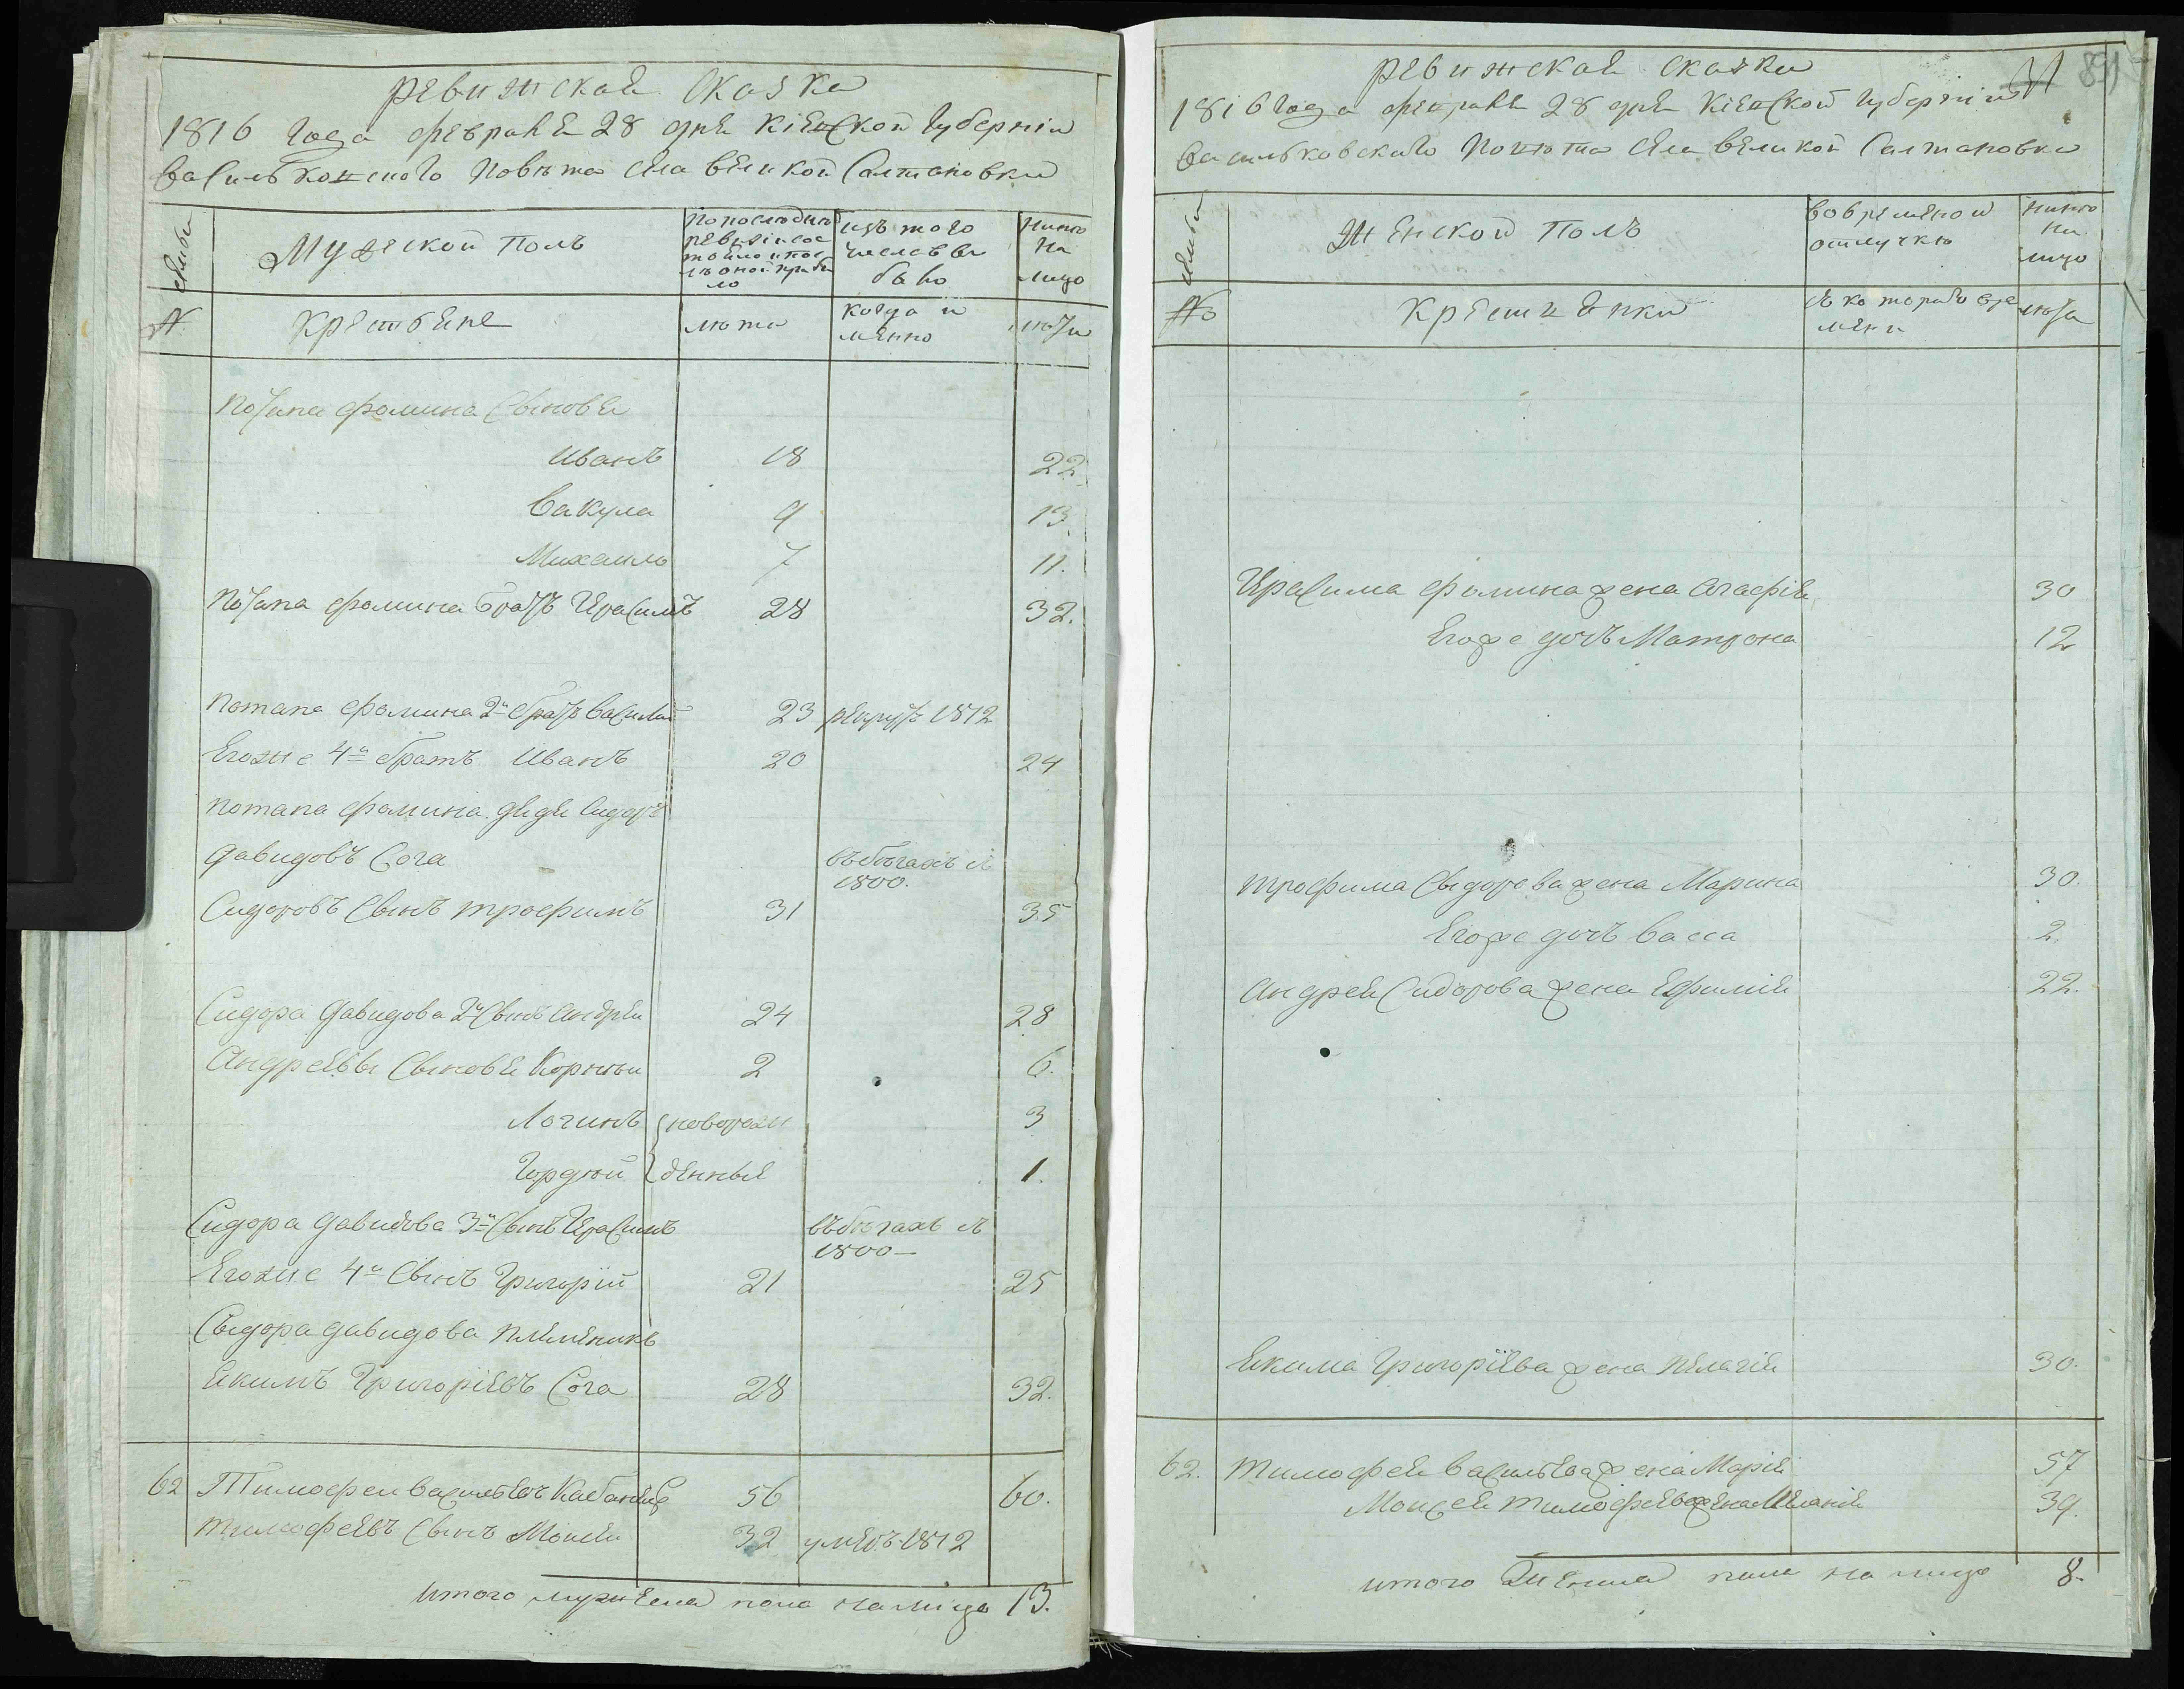 Ревизская Сказка
1816 года февраля 28 дня Кіевской губерніи
Васильковского Повѣта Села Великой Салтановки
Семьи
Мужеской Полъ
По последней ревизіи состояло и после оной прибыло
Изъ того числа выбыло
Нинѣ на лицо
№
Крестьяне
лѣта
когда имянно
лѣта
Потапа Фомина Сыновья
Иванъ 18 22
Вакула 9 13
Михаилъ 7 11.
Потапа Фомина братъ Герасимъ 28 32.
Потапа Фомина 2й братъ Василий 23 рекрутъ 1812
Егоже 4й братъ Иванъ 20 24
Потапа Фомина дядя Сидоръ
Давидовъ Сога въ бѣгахъ съ 1800.
Сидоровъ Сынъ Трофимъ 31 35
Сидора Давидова 2й Сынъ Андрей 24 28
Андреевы Сыновья Корнѣй 2 6.
Логинъ новорож 3
Гордѣй денные 1.
Сидора Давидова 3й Сынъ Герасимъ въ бѣгахъ съ 1800
Егоже 4й Сынъ Григорій 21 25
Сыдора Давидова племеникъ
Якимъ Григоріевъ Сога 28 32.
62 Тимофей Васильевъ Кабанец 56 60.
Тимофеевъ Сынъ Моисей 32 умеръ 1812
Итого мужеска пола налицо 13.
31
891
Ревизская Сказка
1816 года февраля 28 дня Кіевской Губерніи
Васильковского Повѣта Села Великой Салтановки
Семьи
Женской Полъ
Во временной отлучкѣ
Нинѣ на лицо
№
Крестьянки
Съ котораго времени
лѣта
Герасима Фомина жена Агафія 30
Егоже дочь Матрона 12
Трофима Сыдорова жена Марина 30.
Егоже дочь Васса 2.
Андрея Сидорова жена Ефимія 22.
Якима Григоріева жена Пелагія 30.
62. Тимофея Васильева жена Марія 57
Моисея Тимофеева жена Меланія 39.
Итого Женска пола на лицо 8.